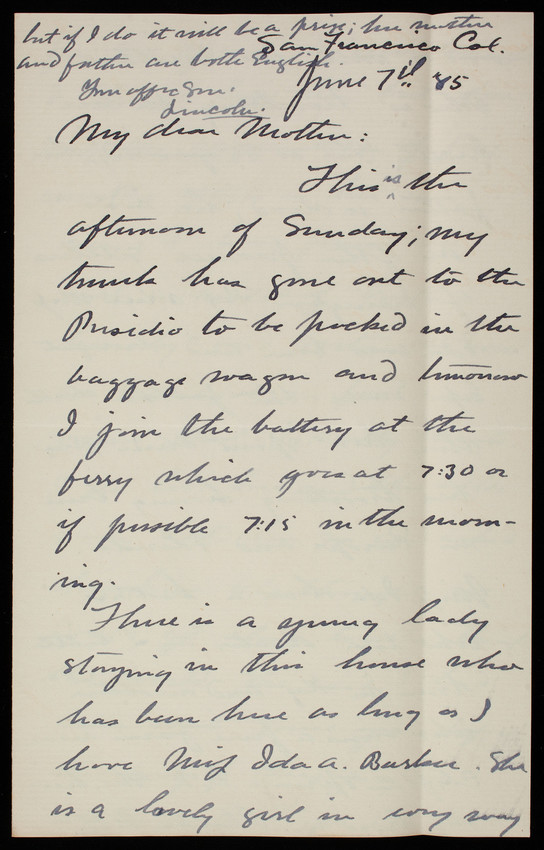 but if I do it will be a prize; her mother
and father are both English.
Your aff. Son.
Lincoln.
San Francisco Cal.
June 7th 85
My dear Mother:
This is the
afternoon of Sunday; my
trunk has gone out to the
Presidio to be packed in the
baggage wagon and tomorrow
I join the battery at the
ferry which goes at 7:30 or
if possible 7:15 in the morn-
ing.
There is a young lady
staying in this house who
has been here as long as I
have Miss Ida A. Barker. She
is a lovely girl in every way